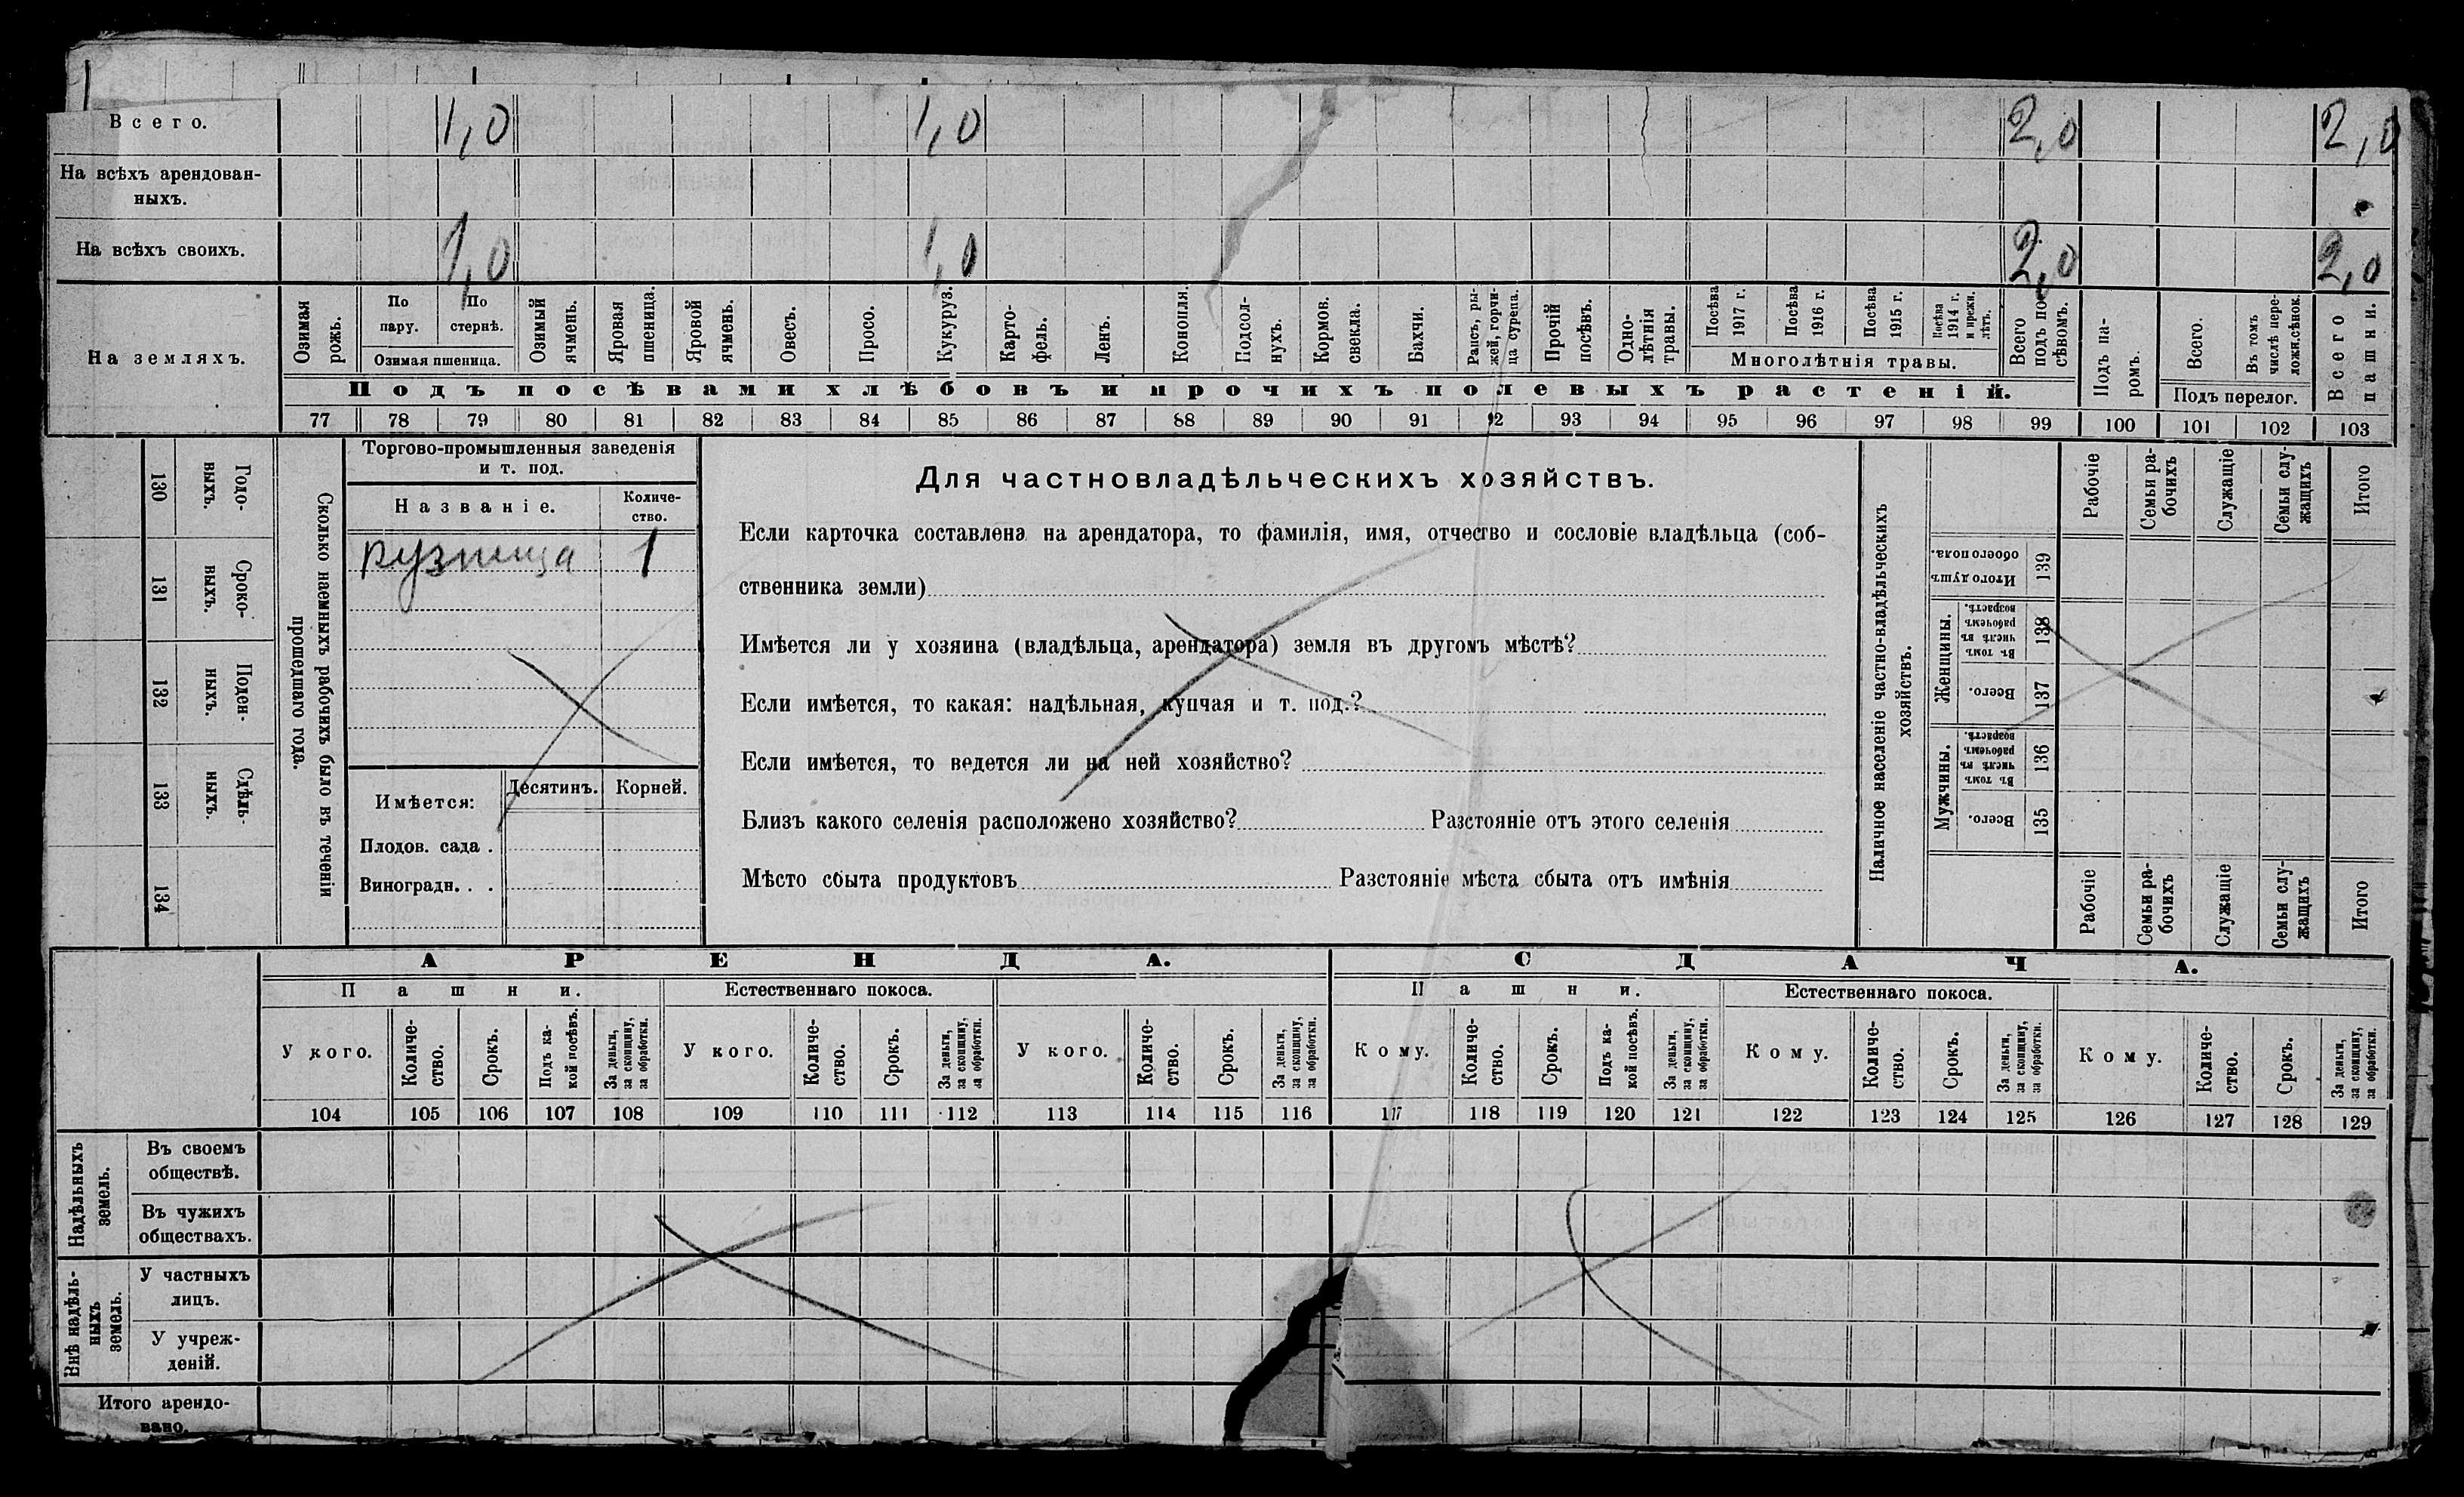 Всего. 1,0 1,0 2,0 2,0
На всѣхъ арендован-
ныхъ.
На всѣхъ своихъ. 1,0 1,0 2,0 2,0
На земляхъ.
Озимая рожь.
По пару.
По стернѣ.
Озимая пшеница.
Озимый ячмень.
Яровая пшеница.
Яровой ячмень.
Овесъ.
Просо.
Кукуруз.
Карто-
фель.
Ленъ.
Конопля.
Подсол-
нухъ.
Кормов. свекла.
Бахчи.
Рапсъ, ры-
жей, горчи-
ца сурепа.
Прочій посѣвъ.
Одно-
лѣтнія травы.
Посѣва 1917 г.
Посѣва 1916 г.
Посѣва 1915 г.
Посѣва 1914 г. и прежн. лѣтъ.
Многолѣтнія травы.
Всего подъ по-
сѣвомъ.
Подъ па-
ромъ.
Всего.
Въ томъ числѣ пере-
ложн.сѣнок.
Подъ перелог.
Всего пашни.
Подъ посѣвами хлѣбовъ и прочихъ полевыхъ растеній.
77 78 79 80 81 82 83 84 85 86 87 88 89 90 91 92 93 94 95 96 97 98 99 100 101 102 103
130 Годо-
выхъ.
131 Сроко-
выхъ.
132 Поден-
ныхъ.
133 Сдѣль-
ныхъ.
134
Сколько наемныхъ рабочихъ было въ теченіи
прошедшаго года.
Торгово-промышленныя заведенія
и т. под.
Названіе. Количе-
ство.
кузница 1
Имѣется: Десятинъ. Корней.
Плодов. сада .
Виноградн. . .
Для частновладѣльческихъ хозяйствъ.
Если карточка составлена на арендатора, то фамилія, имя, отчество и сословіе владѣльца (соб-
ственника земли)
Имѣется ли у хозяина (владѣльца, арендатора) земля въ другомъ мѣстѣ?
Если имѣется, то какая: надѣльная, купчая и т. под.?
Если имѣется, то ведется ли на ней хозяйство?
Близъ какого селенія расположено хозяйство? Разстояніе отъ этого селенія
Мѣсто сбыта продуктовъ Разстояніе мѣста сбыта отъ имѣнія
Наличное населеніе частно-владѣльческихъ
хозяйствъ.
Рабочіе
Семьи ра-
бочихъ
Служащіе
Семьи слу-
жащихъ
Итого
Итого душъ обоего пола. 139
Женщины.
Въ томъ числѣ въ рабочемъ возрастѣ. 138
Всего. 137
Мужчины.
Въ томъ числѣ въ рабочемъ возрастѣ. 136
Всего. 135
Рабочіе
Семьи ра-
бочихъ
Служащіе
Семьи слу-
жащихъ
Итого
АРЕНДА. СДАЧА.
Пашни. Естественнаго покоса. Пашни. Естественнаго покоса.
У кого.
Количе-
ство.
Срокъ.
Подъ ка-
кой посѣвъ.
За деньги, за скопщину, за обработки.
У кого.
Количе-
ство.
Срокъ.
За деньги, за скопщину, за обработки.
У кого.
Количе-
ство.
Срокъ.
За деньги, за скопщину, за обработки.
Кому.
Количе-
ство.
Срокъ.
Подъ ка-
кой посѣвъ.
За деньги, за скопщину, за обработки.
Кому.
Количе-
ство.
Срокъ.
За деньги, за скопщину, за обработки.
Кому.
Количе-
ство.
Срокъ.
За деньги, за скопщину, за обработки.
104 105 106 107 108 109 110 111 112 113 114 115 116 117 118 119 120 121 122 123 124 125 126 127 128 129
Надѣльныхъ земель.
Въ своемъ
обществѣ.
Въ чужихъ
обществахъ.
Внѣ надѣль-
ныхъ земель.
У частныхъ
лицъ.
У учреж-
деній.
Итого арендо-
вано.